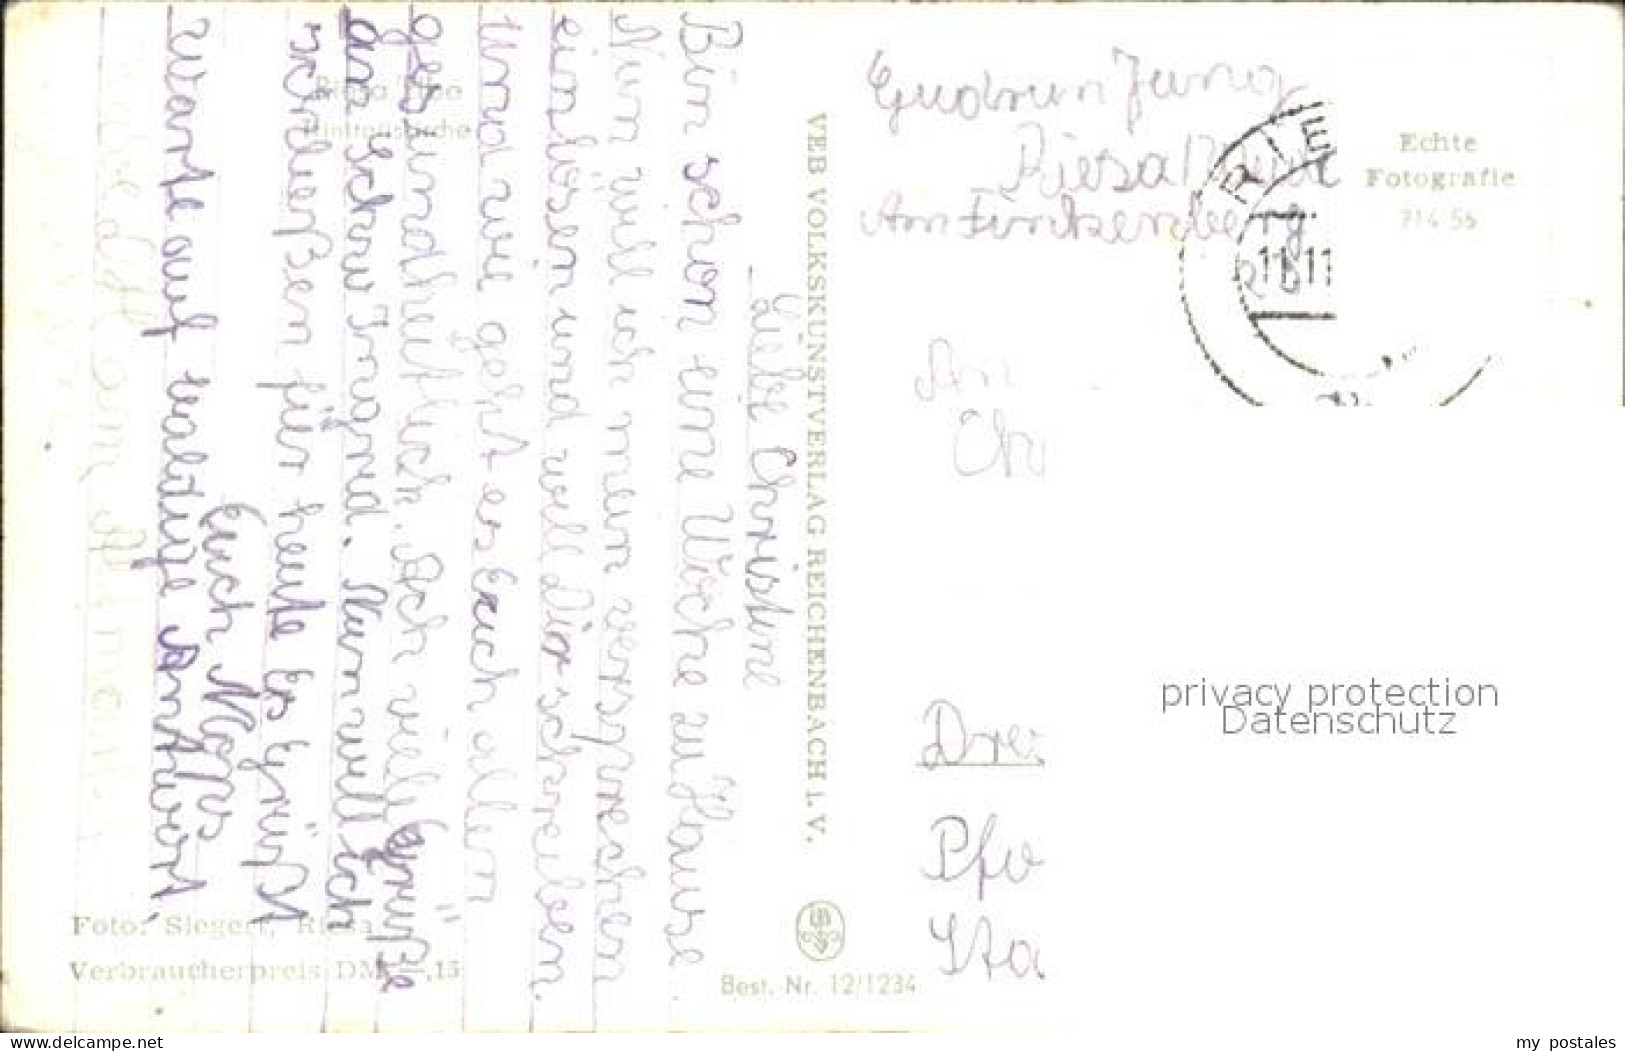 Riesa Elbe
Liebe Christine
Bin schon eine Woche zu Hause
Nun will ich mein versprechen
einlösen und will Dir schreiben.
Und wie geht es Euch allen
gesundheitlich. Ach viele Grüße
an Ingrid. Nun will ich
schließen für heute Es Grüßt
Euch
Warte auf baldige Antwort.
Foto: Siegert, Riesa
Verbraucherpreis DM -,15
VEB VOLKSKUNSTVERLAG REICHENBACH i. V.
Best.-Nr. 12/1234
Gudrun Jung
Riesa
Am Finkenberg
RIE
11.11
Echte
Fotografie
714 56
An
Chr
Dre
Pfo
Sta
privacy protection
Datenschutz
www.delcampe.net
my_postales